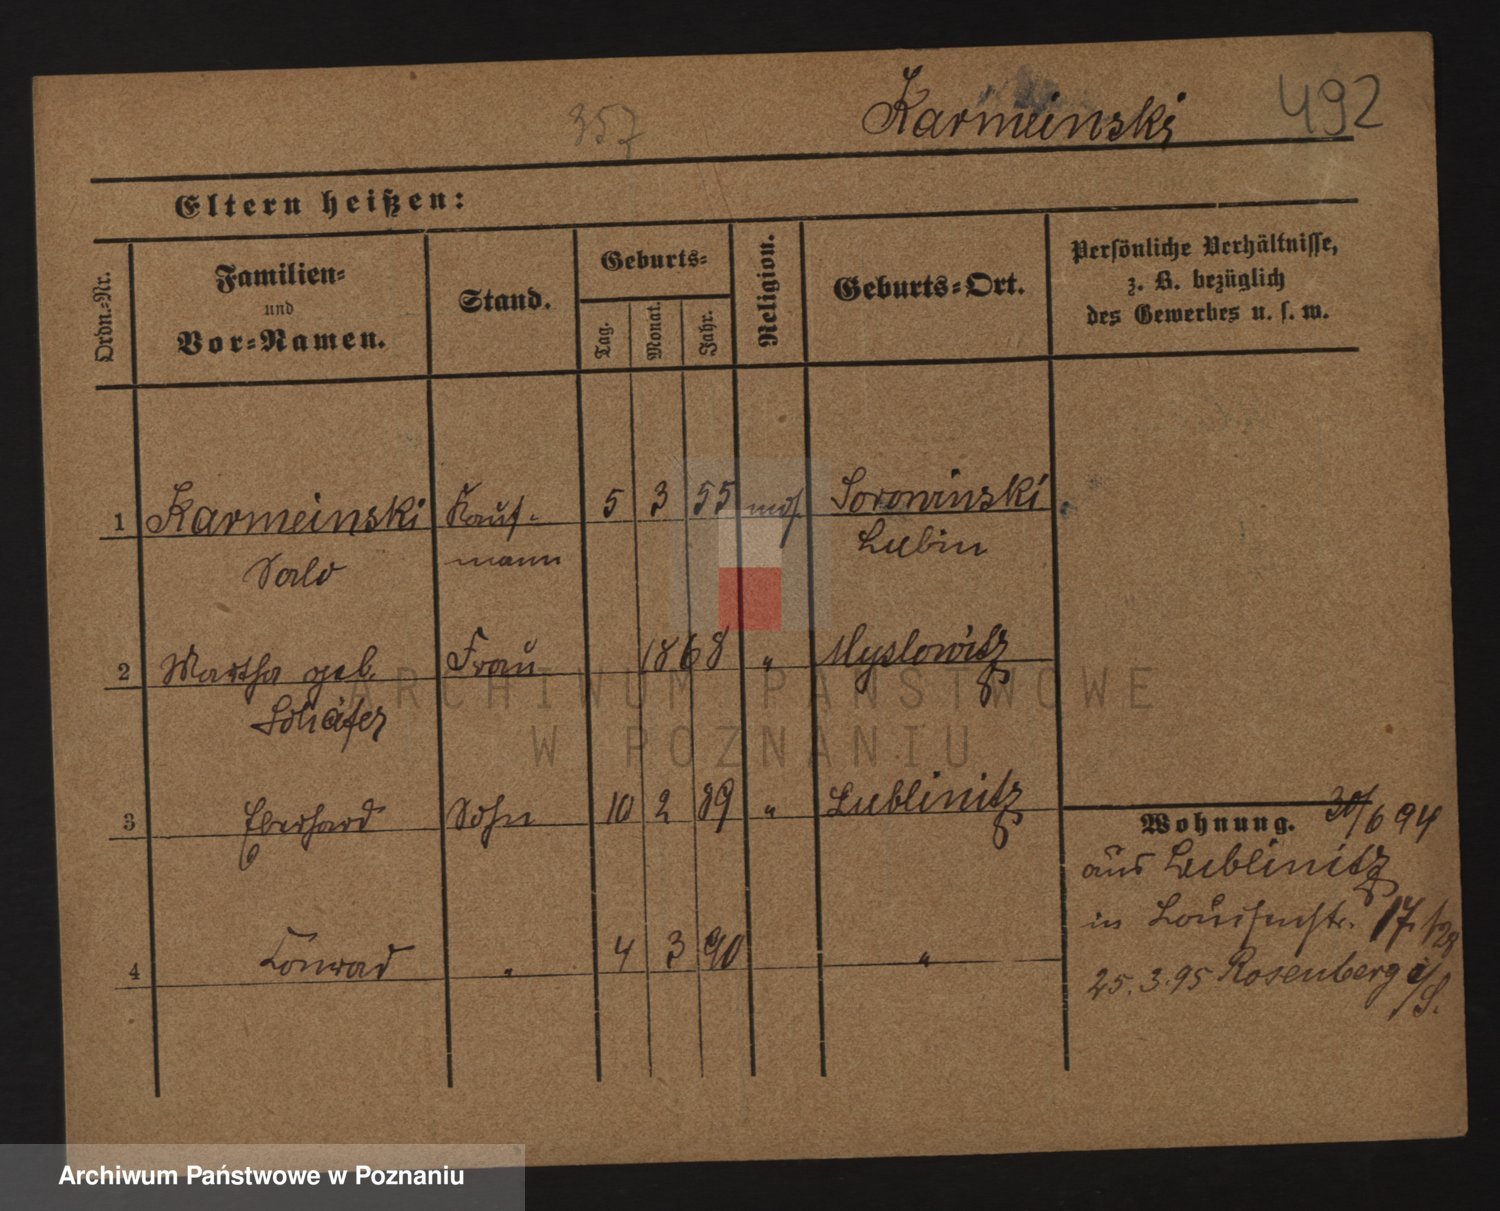 357
Karmeinski
492
Eltern heißen:
Ordn.-Nr.
Familien-
und
Vor-Namen.
Stand.
Geburts-
Tag.
Monat.
Jahr.
Religion.
Geburts-Ort.
Persönliche Verhältnisse,
z. B. bezüglich
des Gewerbes u. s. w.
1 Karmeinski Kauf- 5 3 55 mos. Sorowinski
Salo mann Lubin
2 Martha geb. Frau 1868 " Myslowitz
Schäfer
3 Eberhard Sohn 10 2 89 " Lublinitz
4 Conrad " 4 3 90 "
Wohnung. 30/6 94
aus Lublinitz
in Louisenstr. 17
25.3.95 Rosenberg i/S.
ARCHIWUM PAŃSTWOWE
W POZNANIU
Archiwum Państwowe w Poznaniu